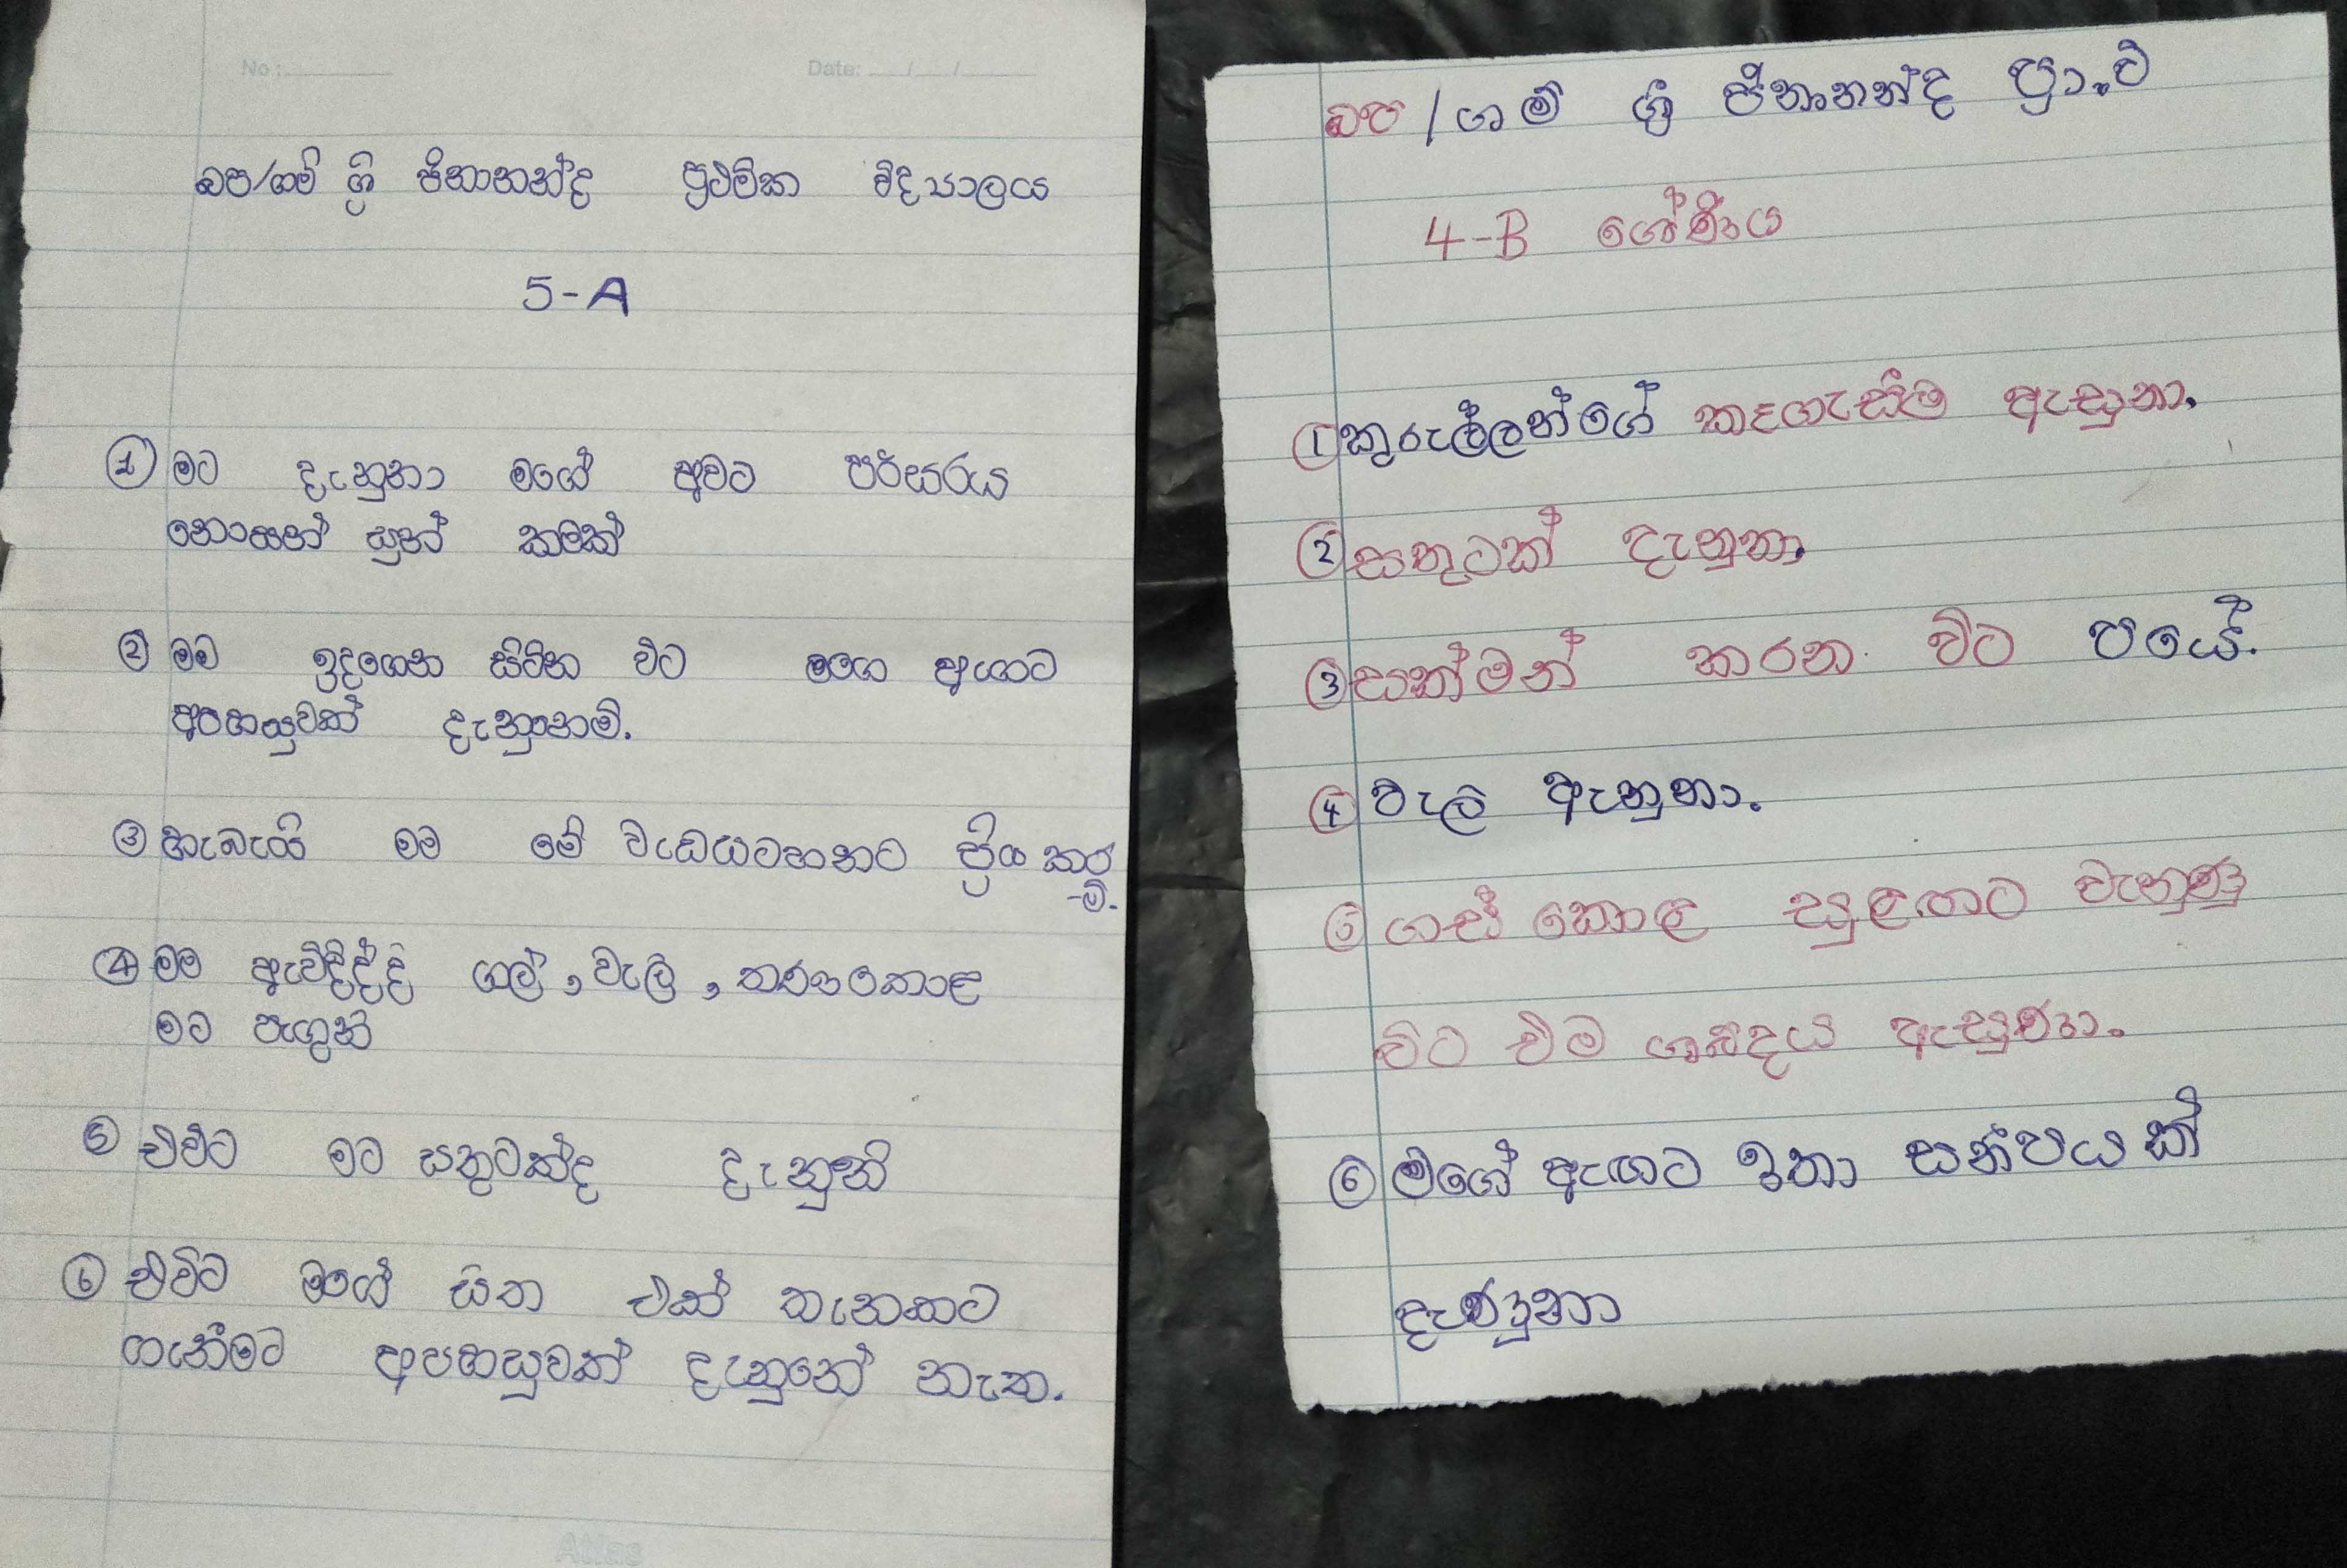 No : Date: / /
බප/ගම් ශ්‍රි ජිනානන්ද ප්‍රථමික විද්‍යාලය
5-A
① මට දැනුනා මගේ අවට පරිසරය
නොසන් සුන් කමක්
② මම ඉදගෙන සිටින විට මගෙ ඇගට
අපහසුවක් දැනුනාමි.
③ හැබැයි මම මේ වැඩයටහනට ප්‍රිය කර
-මි.
④ මම ඇවිද්දිද්දි ගල් , වැලි , තණකොළ
මට පැගුනි
⑤ එවිට මට සතුටක්ද දැනුනි
⑥ එවිට මගේ සිත එක් තැනකට
ගැනීමට අපහසුවක් දැනුනේ නැත.
Atlas
බප/ගම් ශ්‍රී ජිනානන්ද ප්‍රා.වි
4-B ශ්‍රේණිය
① කුරුල්ලන්ගේ කෑගැසීම ඇසුනා.
② සතුටක් දැනුනා.
③ සක්මන් කරන විට පයේ.
④ වැලි ඇනුනා.
⑤ ගස් කොළ සුළඟට වැනුණු
විට එම ශබ්දය ඇසුණා.
⑥ මගේ ඇඟට ඉතා සනීපයක්
දැණුනා